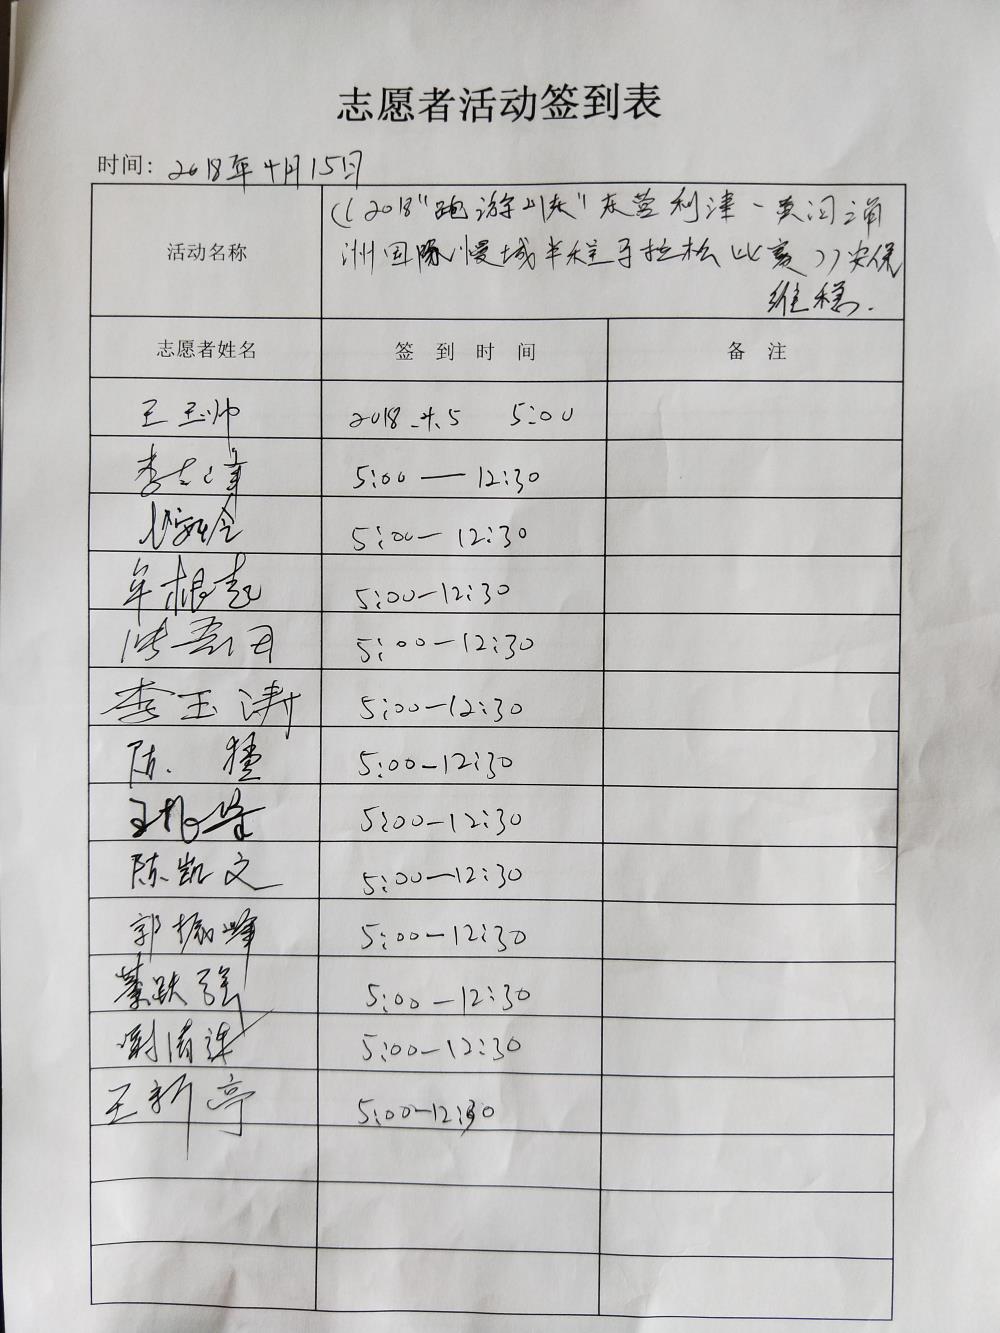 志愿者活动签到表
时间: 2018年4月15日
活动名称
《2018"跑游山东"东营利津-黄河滩
洲国际慢城半程马拉松比赛》安保
维稳.
志愿者姓名 签到时间 备注
王玉帅 2018.4.5 5:00
李 5:00—12:30
5:00—12:30
牟根起 5:00-12:30
5:00-12:30
李玉涛 5:00-12:30
陈 5:00-12:30
王 5:00-12:30
陈凯文 5:00-12:30
郭振峰 5:00-12:30
綦跃强 5:00-12:30
5:00-12:30
王新亭 5:00-12:30